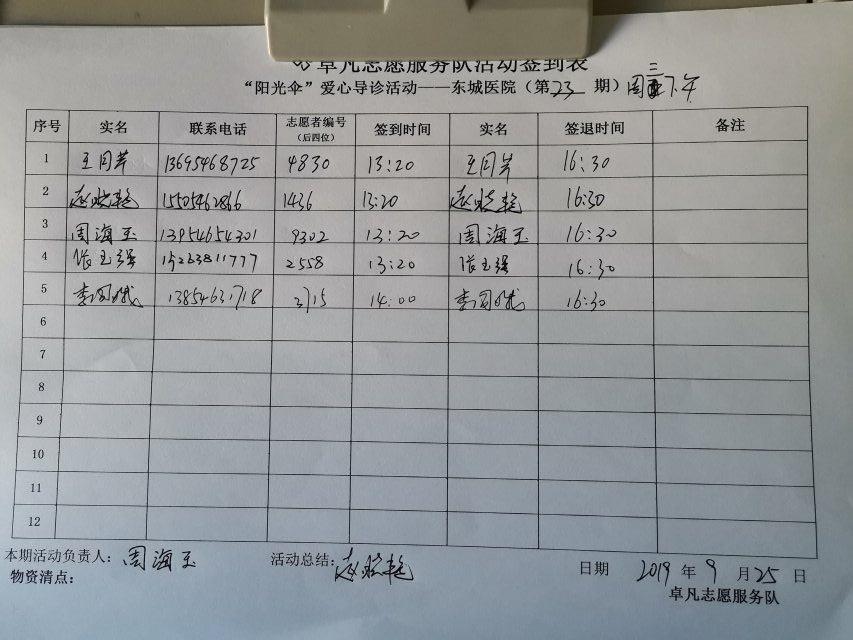 卓凡志愿服务队活动签到表
“阳光伞”爱心导诊活动——东城医院（第23期）周三下午
序号 实名 联系电话 志愿者编号（后四位） 签到时间 实名 签退时间 备注
1 王月芹 13695468725 4830 13:20 王月芹 16:30
2 赵晓艳 15505462866 1436 13:20 赵晓艳 16:30
3 周海玉 13954654301 9302 13:20 周海玉 16:30
4 张玉强 15263811777 2558 13:20 张玉强 16:30
5 13854631718 3715 14:00 16:30
6
7
8
9
10
11
12
本期活动负责人：周海玉 活动总结：赵晓艳 日期 2019年9月25日
物资清点： 卓凡志愿服务队